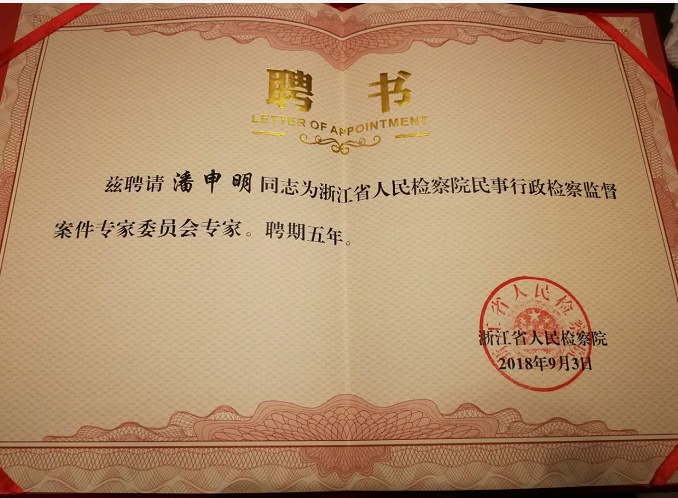 聘书
LETTER OF APPOINTMENT
兹聘请潘申明同志为浙江省人民检察院民事行政检察监督
案件专家委员会专家。聘期五年。
浙江省人民检察院
浙江省人民检察院
2018年9月3日